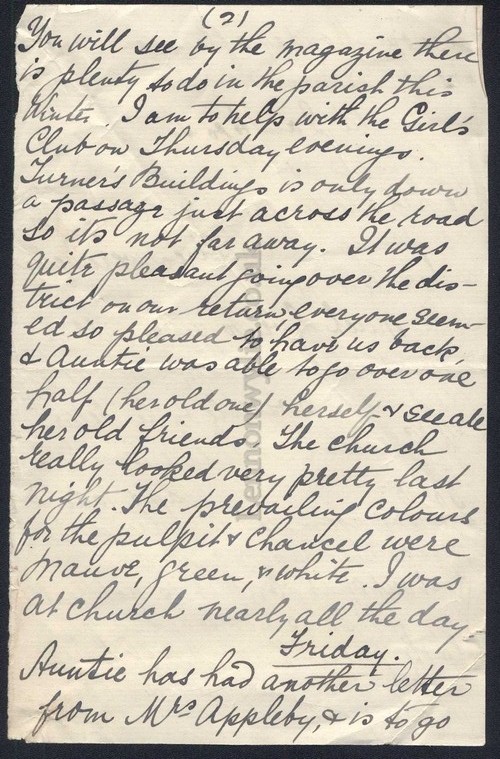 (2)
You will see by the magazine there
is plenty to do in the parish this
winter. I am to help with the Girl's
Club on Thursday evenings.
Turner's Buildings is only down
a passage just across the road
so its not far away. It was
quite pleasant going over the dis-
trict on our return, everyone seem-
ed so pleased to have us back,
& Auntie was able to go over one
half (her old one) herself & see all
her old friends. The church
really looked very pretty last
night. The prevailing colours
for the pulpit & chancel were
mauve, green, & white. I was
at church nearly all the day.
Friday.
Auntie has had another letter
from Mrs Appleby, & is to go